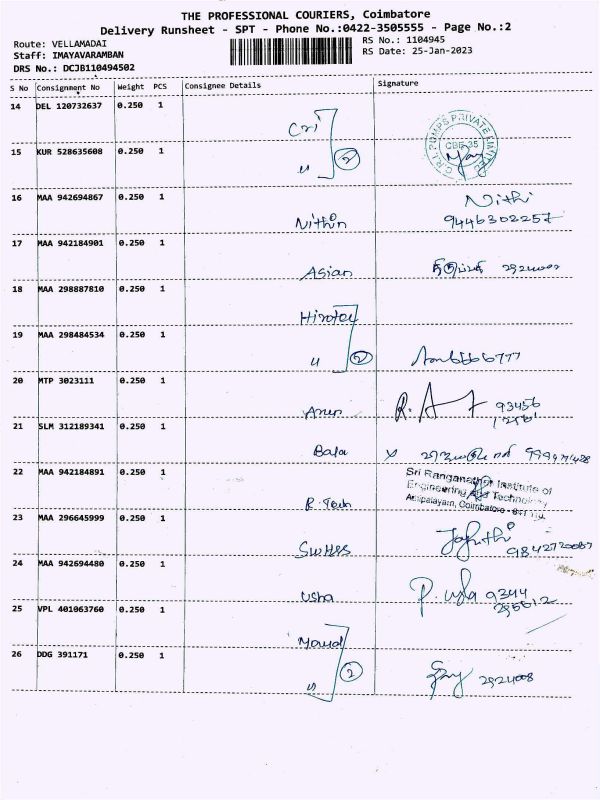 THE PROFESSIONAL COURIERS, Coimbatore
Delivery Runsheet - SPT - Phone No.:0422-3505555 - Page No.:2
Route: VELLAMADAI
Staff: IMAYAVARAMBAN
DRS No.: DCJB110494502
RS No.: 1104945
RS Date: 25-Jan-2023
S No Consignment No Weight PCS Consignee Details Signature
14 DEL 120732637 0.250 1 Cri
C.R.I. PUMPS PRIVATE LIMITED
CBE-35
15 KUR 528635608 0.250 1 u 2
16 MAA 942694867 0.250 1 Nithin Nithi
9446302257
17 MAA 942184901 0.250 1 Asian
18 MAA 298887810 0.250 1
19 MAA 298484534 0.250 1 u 2
20 MTP 3023111 0.250 1 Arun R. A 93456
21 SLM 312189341 0.250 1 Bala x
22 MAA 942184891 0.250 1
Sri Ranganathar Institute of
Engineering and Technology
Athipalayam, Coimbatore - 641 110.
23 MAA 296645999 0.250 1 9842720087
24 MAA 942694480 0.250 1 Usha 9344
25 VPL 401063760 0.250 1
26 DDG 391171 0.250 1 u 2